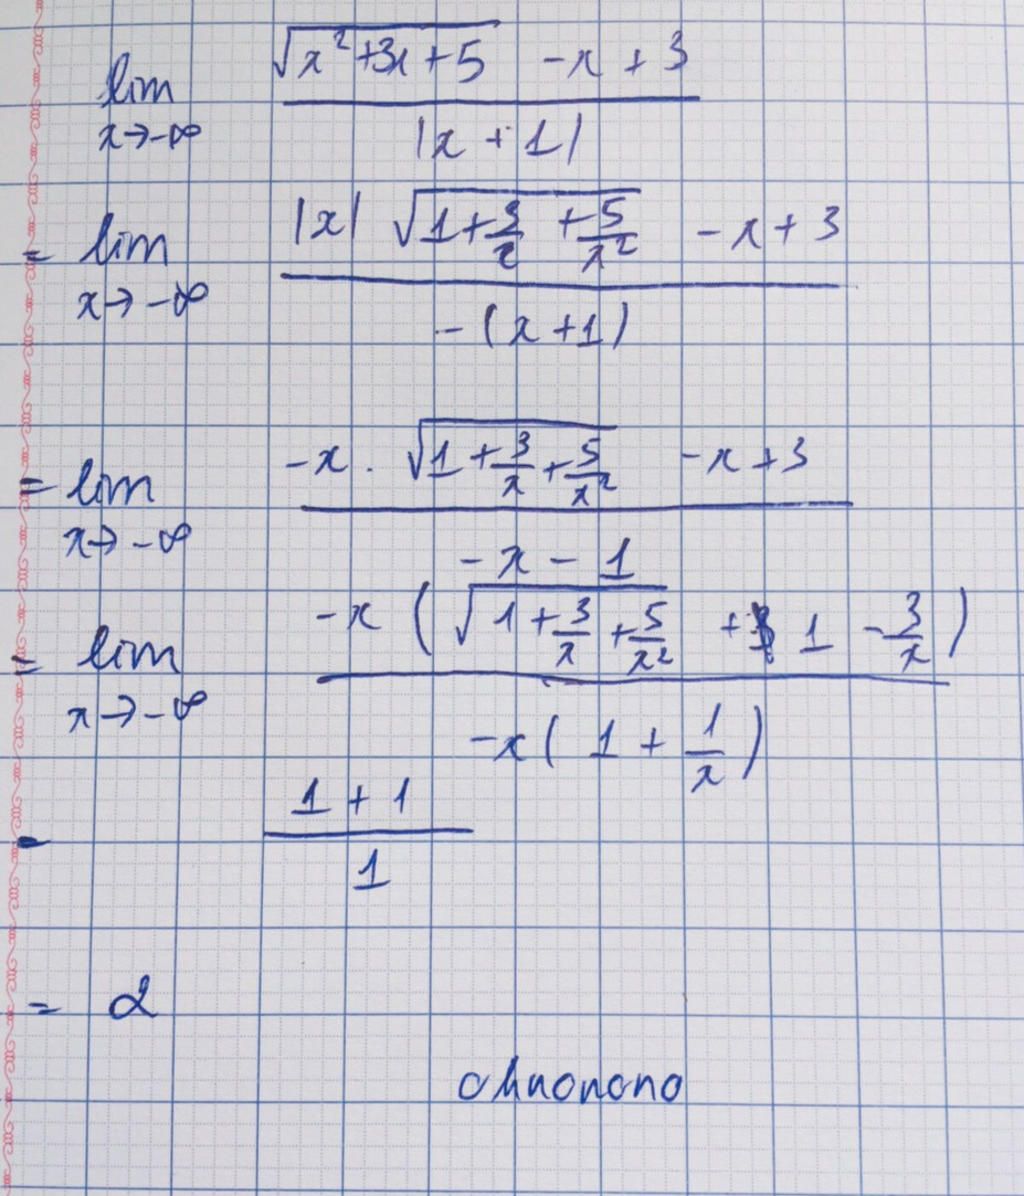 lim x→-∞ (√(x²+3x+5) -x+3) / |x+1|
= lim x→-∞ (|x| √(1+3/x+5/x²) -x+3) / -(x+1)
= lim x→-∞ (-x . √(1+3/x+5/x²) -x+3) / (-x-1)
= lim x→-∞ (-x (√(1+3/x+5/x²) + 1 - 3/x)) / (-x(1+1/x))
= (1+1) / 1
= 2